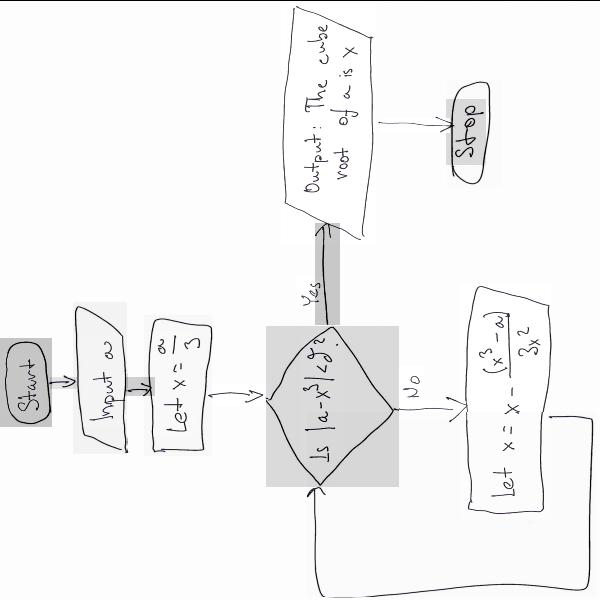 Start
Input a
Let x = a/3
Is |a-x³|<g?
Yes
Output: The cube
root of a is x
Stop
No
Let x = x - (x³ - a)/3x²